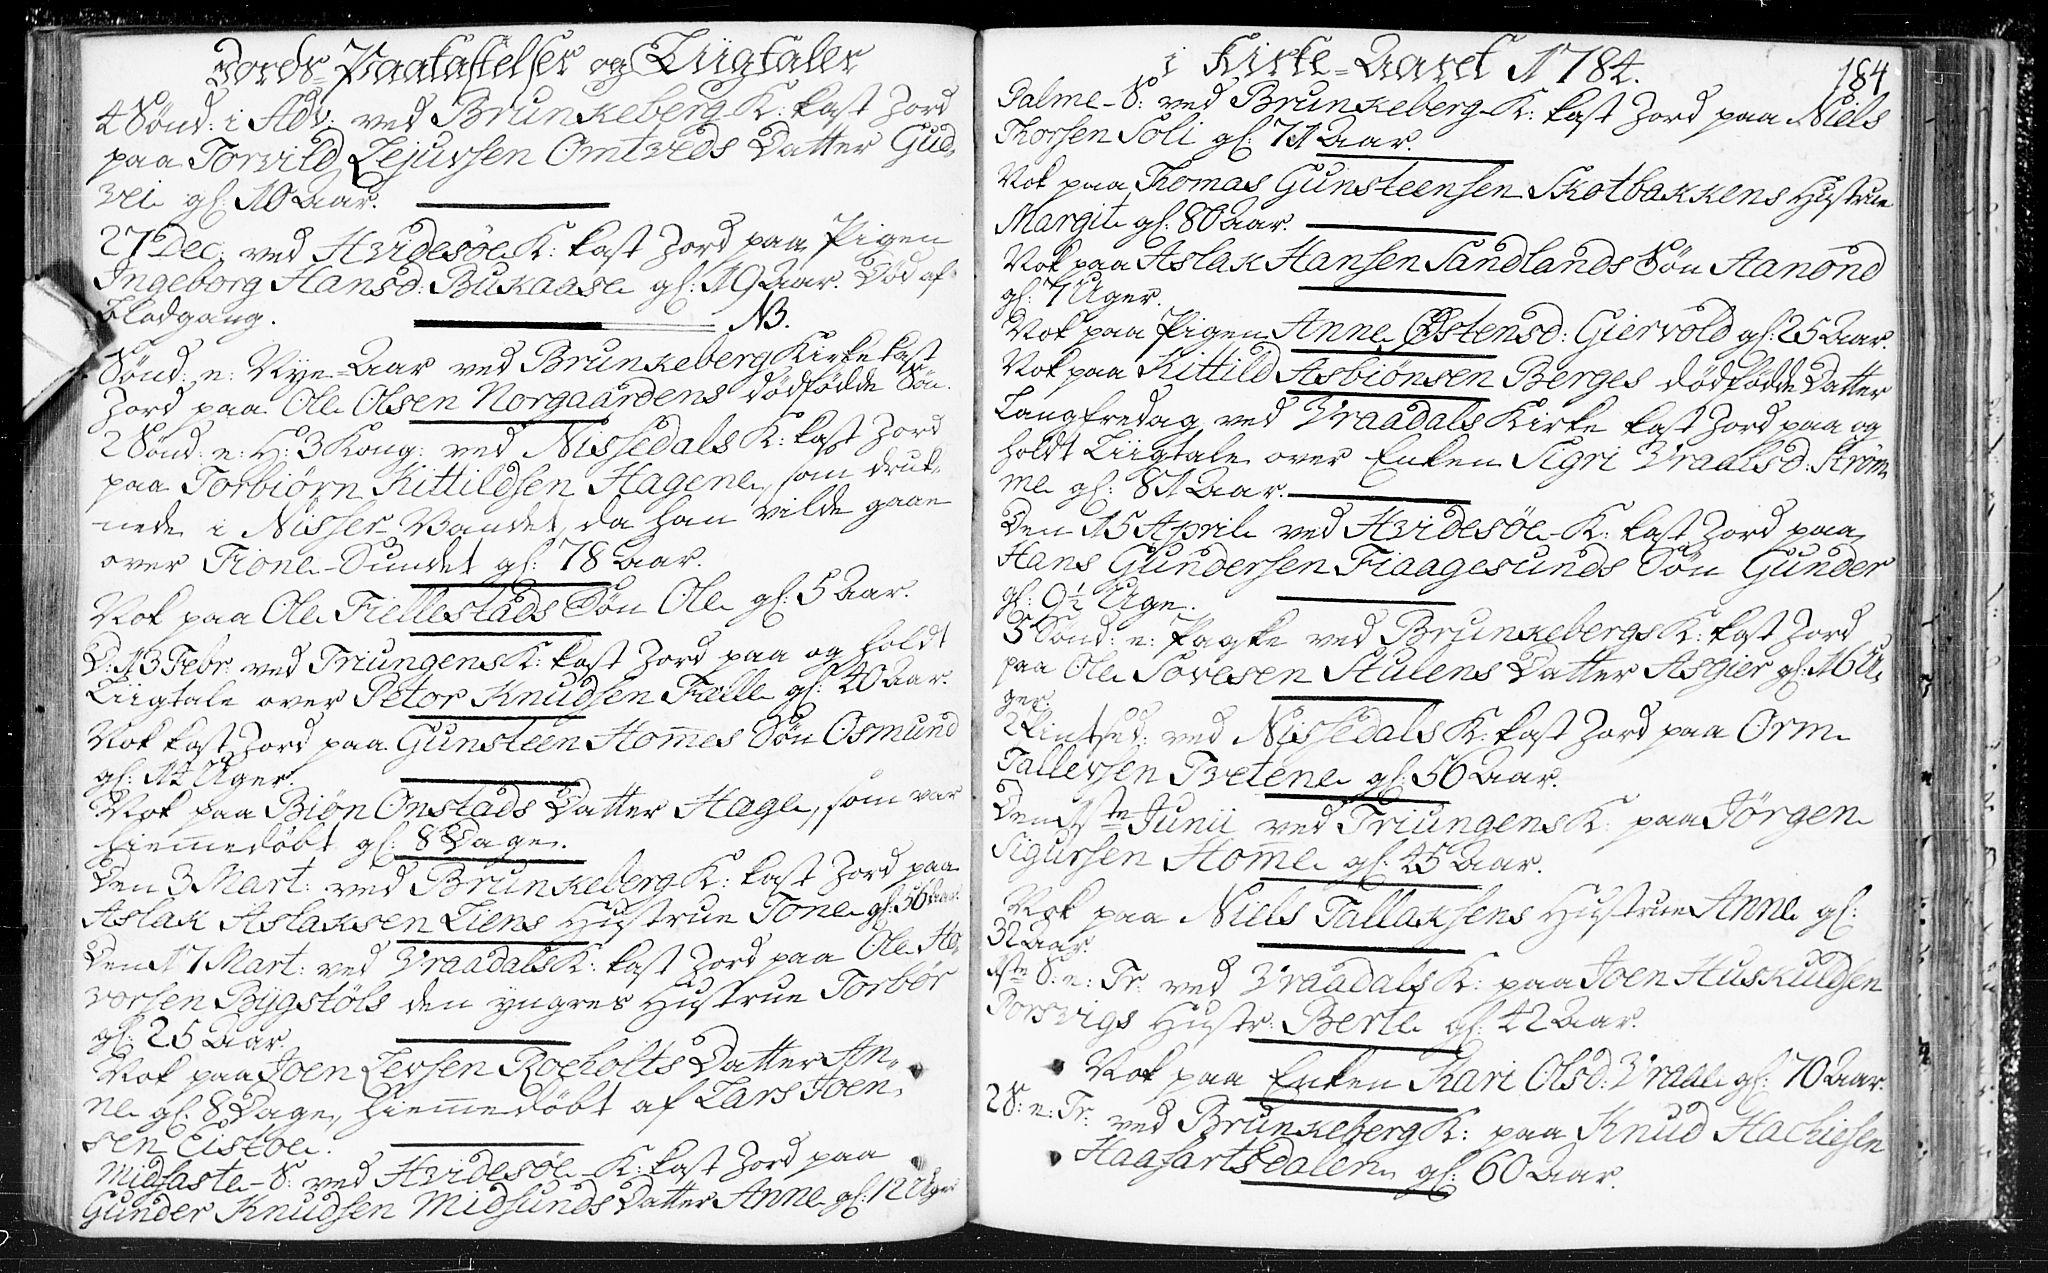 Jords-Paakastelser og Liigtaler
4 Sønd: i Adv: ved Brunkeberg K: kast Jord
paa Torvild Lejulsen Omtveds Datter Gud-
vei gl: 10 Aar.
27 Dec: ved Hvidesøe K: kast Jord paa Pigen
Ingeborg Hansd: Bukaase gl: 19 Aar. Død af
Blodgang. NB.
Sønd: e: Nye-Aar ved Brunkeberg Kirke kast
Jord paa Ole Olsen Norgaardens dødfødde Søn.
2 Sønd: e: H: 3 Kong: ved Nissedals K: kast Jord
paa Torbiørn Kittildsen Hagene, som druk-
nede i Nisser-Vandet, da han vilde gaae
over Fione-Sundet gl: 78 Aar.
Nok paa Ole Fiellestads Søn Ole gl: 5 Aar.
D: 13 Febr: ved Triungens K: kast Jord paa og holdt
Liigtale over Petor Knudsen Fælle gl: 40 Aar.
Nok kast Jord paa Gunsteen Hom̅es Søn Osmund
gl: 14 Uger.
Nok paa Biøn Onstads Datter Hæge, som var
hiem̅edøbt gl: 8 Dage.
Den 3 Mart: ved Brunkeberg K: kast Jord paa
Aslak Aslaksen Liens Hustrue Tone gl: 56 Aar.
Den 17 Mart: ved Vraadals K: kast Jord paa Ole Ha-
vorsen Bygstøls den yngres Hustrue Torbør
gl: 25 Aar.
Nok paa Joen Levsen Roeholts Datter An-
ne gl: 8 Dage, hiem̅edøbt af Lars Joen-
sen Eistoe.
Midfaste-S: ved Hvidesøe-K: kast Jord paa
Gunder Knudsen Midsunds Datter Anne gl: 12 Uger
i Kirke-Aaret 1784.
184
Palme-S: ved Brunkeberg-K: kast Jord paa Niels
Thorsen Soli gl: 71 Aar.
Nok paa Thomas Gunsteensen Skotbakkens Hustrue
Margit gl: 80 Aar.
Nok paa Aslak Hansen Sandlands Søn Aanond
gl: 7 Uger.
Nok paa Pigen Anne Østensd: Giervold gl: 25 Aar.
Nok paa Kittild Asbiønsen Berges dødfødde Datter
Langfredag ved Vraadals Kirke kast Jord paa og
holdt Liigtale over Enken Sigri Vraalsd: Strøm-
me gl: 81 Aar.
Den 15 April ved Hvidesøe-K: kast Jord paa
Hans Gundersen Fiaagesunds Søn Gunder
gl: 9½ Uge.
5 Sønd: e: Paaske ved Brunkebergs K: kast Jord
paa Ole Tovesen Stulens Datter Asgier gl: 16 U-
ger.
2 Pintsed: ved Nissedals K: kast Jord paa Orm
Tallevsen Tvetene gl: 56 Aar.
Den 1ste Junii ved Triungens K: paa Jørgen
Sigursen Hom̅e gl: 45 Aar.
Nok paa Niels Tallaksens Hustrue Anne gl:
32 Aar.
1ste S: e: Tr: ved Vraadals K: paa Joen Huskuldsen
Porsvigs Hustr: Berte gl: 42 Aar.
Nok paa Enken Kari Olsd: Vraae gl: 70 Aar.
2 S: e: Tr: ved Brunkeberg K: paa Knud Hachiesen
Haafartsdalen gl: 60 Aar.